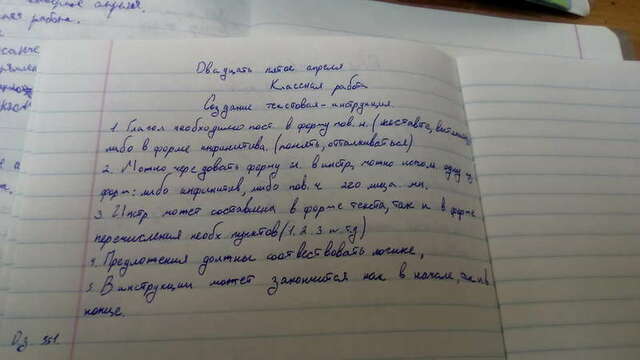 апреля.
работа.
Двадцать пятое апреля
Классная работа
Создание текстовая-интрукция.
1. Глагол необходимо пост. в форму пов. н. (поставьте,
либо в форме инфинитива. (понять, отталкиваться)
2. Можно чередовать форму и. в инстр, можно испол. одну из
форм: либо инфинитив, либо пов. ч 2го лица. мн.
3. Инстр. может составлена в форме текста, так и в форме
перечисления необх. пунктов (1. 2. 3 и. т.д)
4. Предложения должны соотвествовать логике,
5. В инструкции может закончится как в начале, так и в
конце.
Дз 351